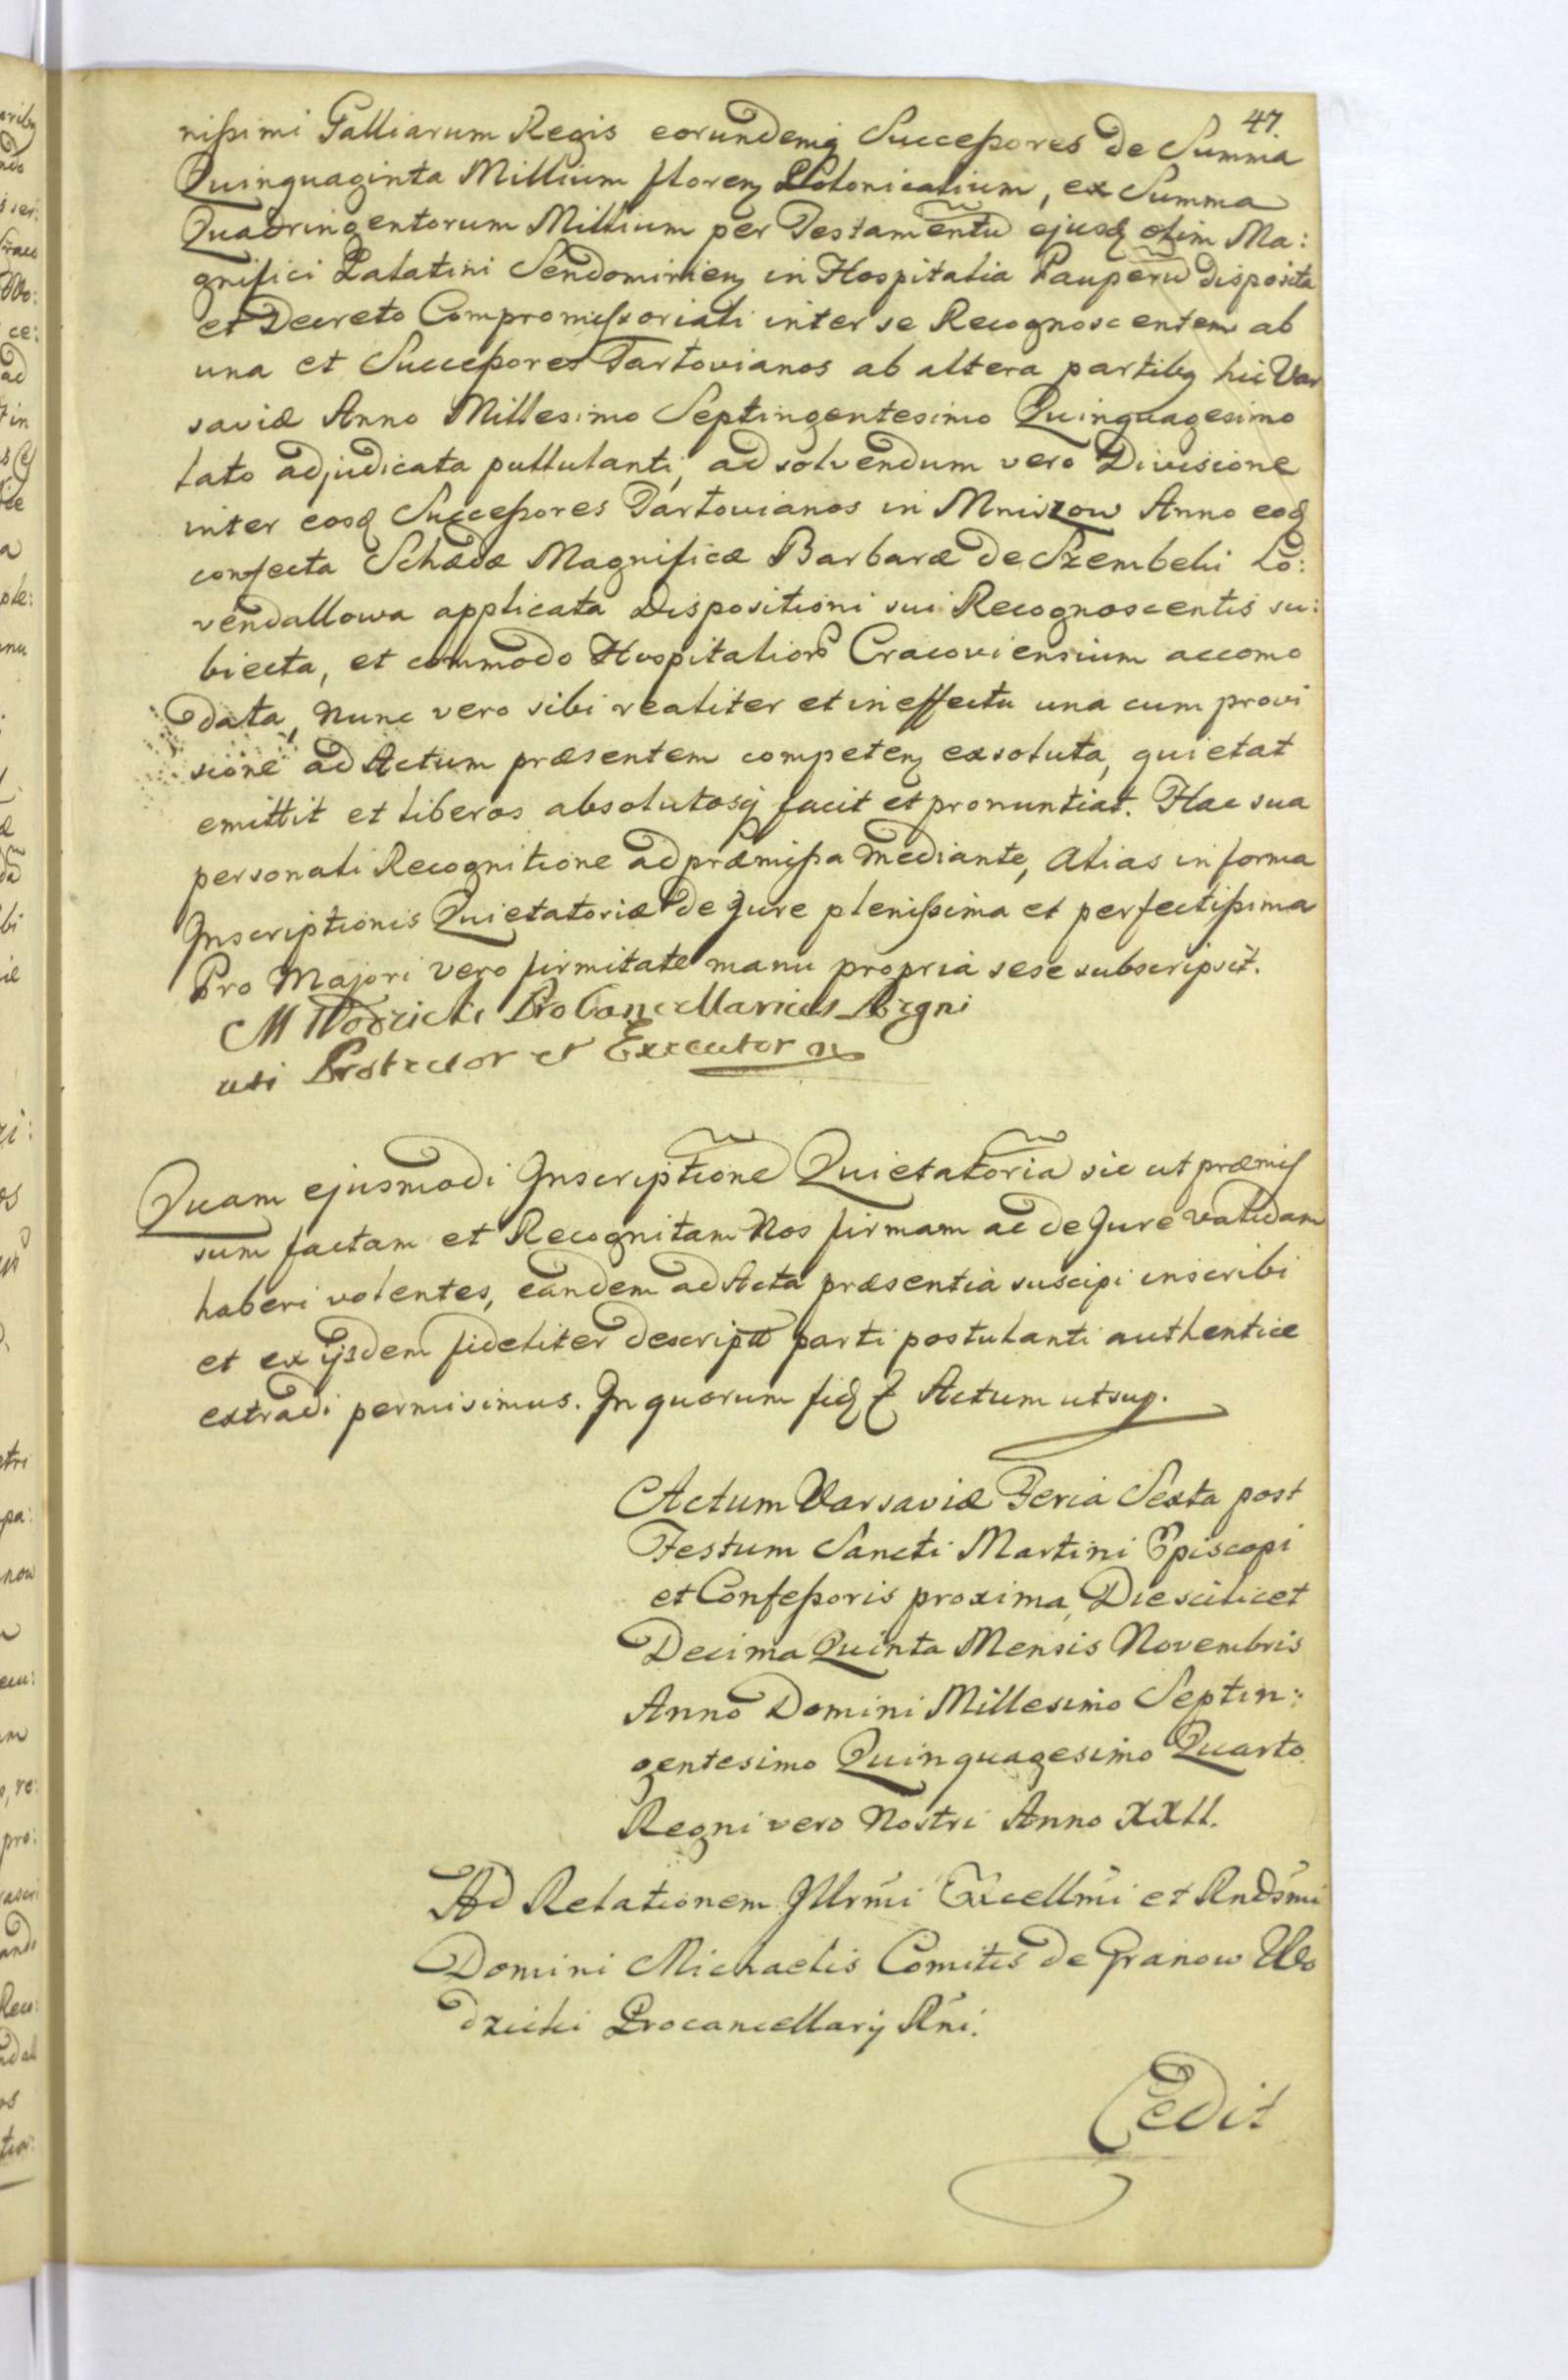 47.
nissimi Galliarum Regis eorundemq Successores de Summa
Quinquaginta Millium floren Polonicalium, ex Summa
Quadringentorum Millium per Testamentũ ejusd olim Ma:
gnifici Palatini Sendomirien in Hospitalia Pauperũ disposita
et Decreto Compromissoriali inter se Recognoscentem ab
una et Successores Tartovianos ab altera partibq hic Var
saviæ Anno Millesimo Septingentesimo Quinquagesimo
lato adjudicata pullulanti, ad solvendum vero Divisione
inter eosd Successores Tartovianos in Mniszow Anno eod
confecta Schædæ Magnificæ Barbaræ de Szembeki Lo:
vendallowa applicata Dispositioni sui Recognoscentis su:
biecta, et commodo Hospitalior Cracoviensium accomo
data, nunc vero sibi realiter et in effectu una cum provi
sione ad Actum præsentem competen exsoluta, quietat
emittit et liberos absolutosq facit et pronuntiat. Hac sua
personali Recognitione ad præmissa mediante, Alias in forma
Inscriptionis Quietatoriæ de Jure plenissima et perfectissima
Pro Majori vero firmitate manu propria sese subscripsit.
M Wodzicki ProCancellarius Regni
uti Protector et Executor

Quam ejusmodi Inscriptione Quietatoria sic ut præmis
sum factam et Recognitam Nos firmam ac de Jure validam
haberi volentes, eandem ad Acta præsentia suscipi inscribi
et ex ijsdem fideliter descriptt parti postulanti authentice
extradi permisimus. In quorum fid Actum ut sup.
Actum Varsaviæ Feria Sexta post
Festum Sancti Martini Episcopi
et Confessoris proxima, Die scilicet
Decima Quinta Mensis Novembris
Anno Domini Millesimo Septin:
gentesimo Quinquagesimo Quarto
Regni vero Nostri Anno XXII.
Ad Relationem Illrmi Excellmi et Rndsmi
Domini Michaelis Comitis de Granow Wo
dzicki Procancellarij Rni.
Cedit